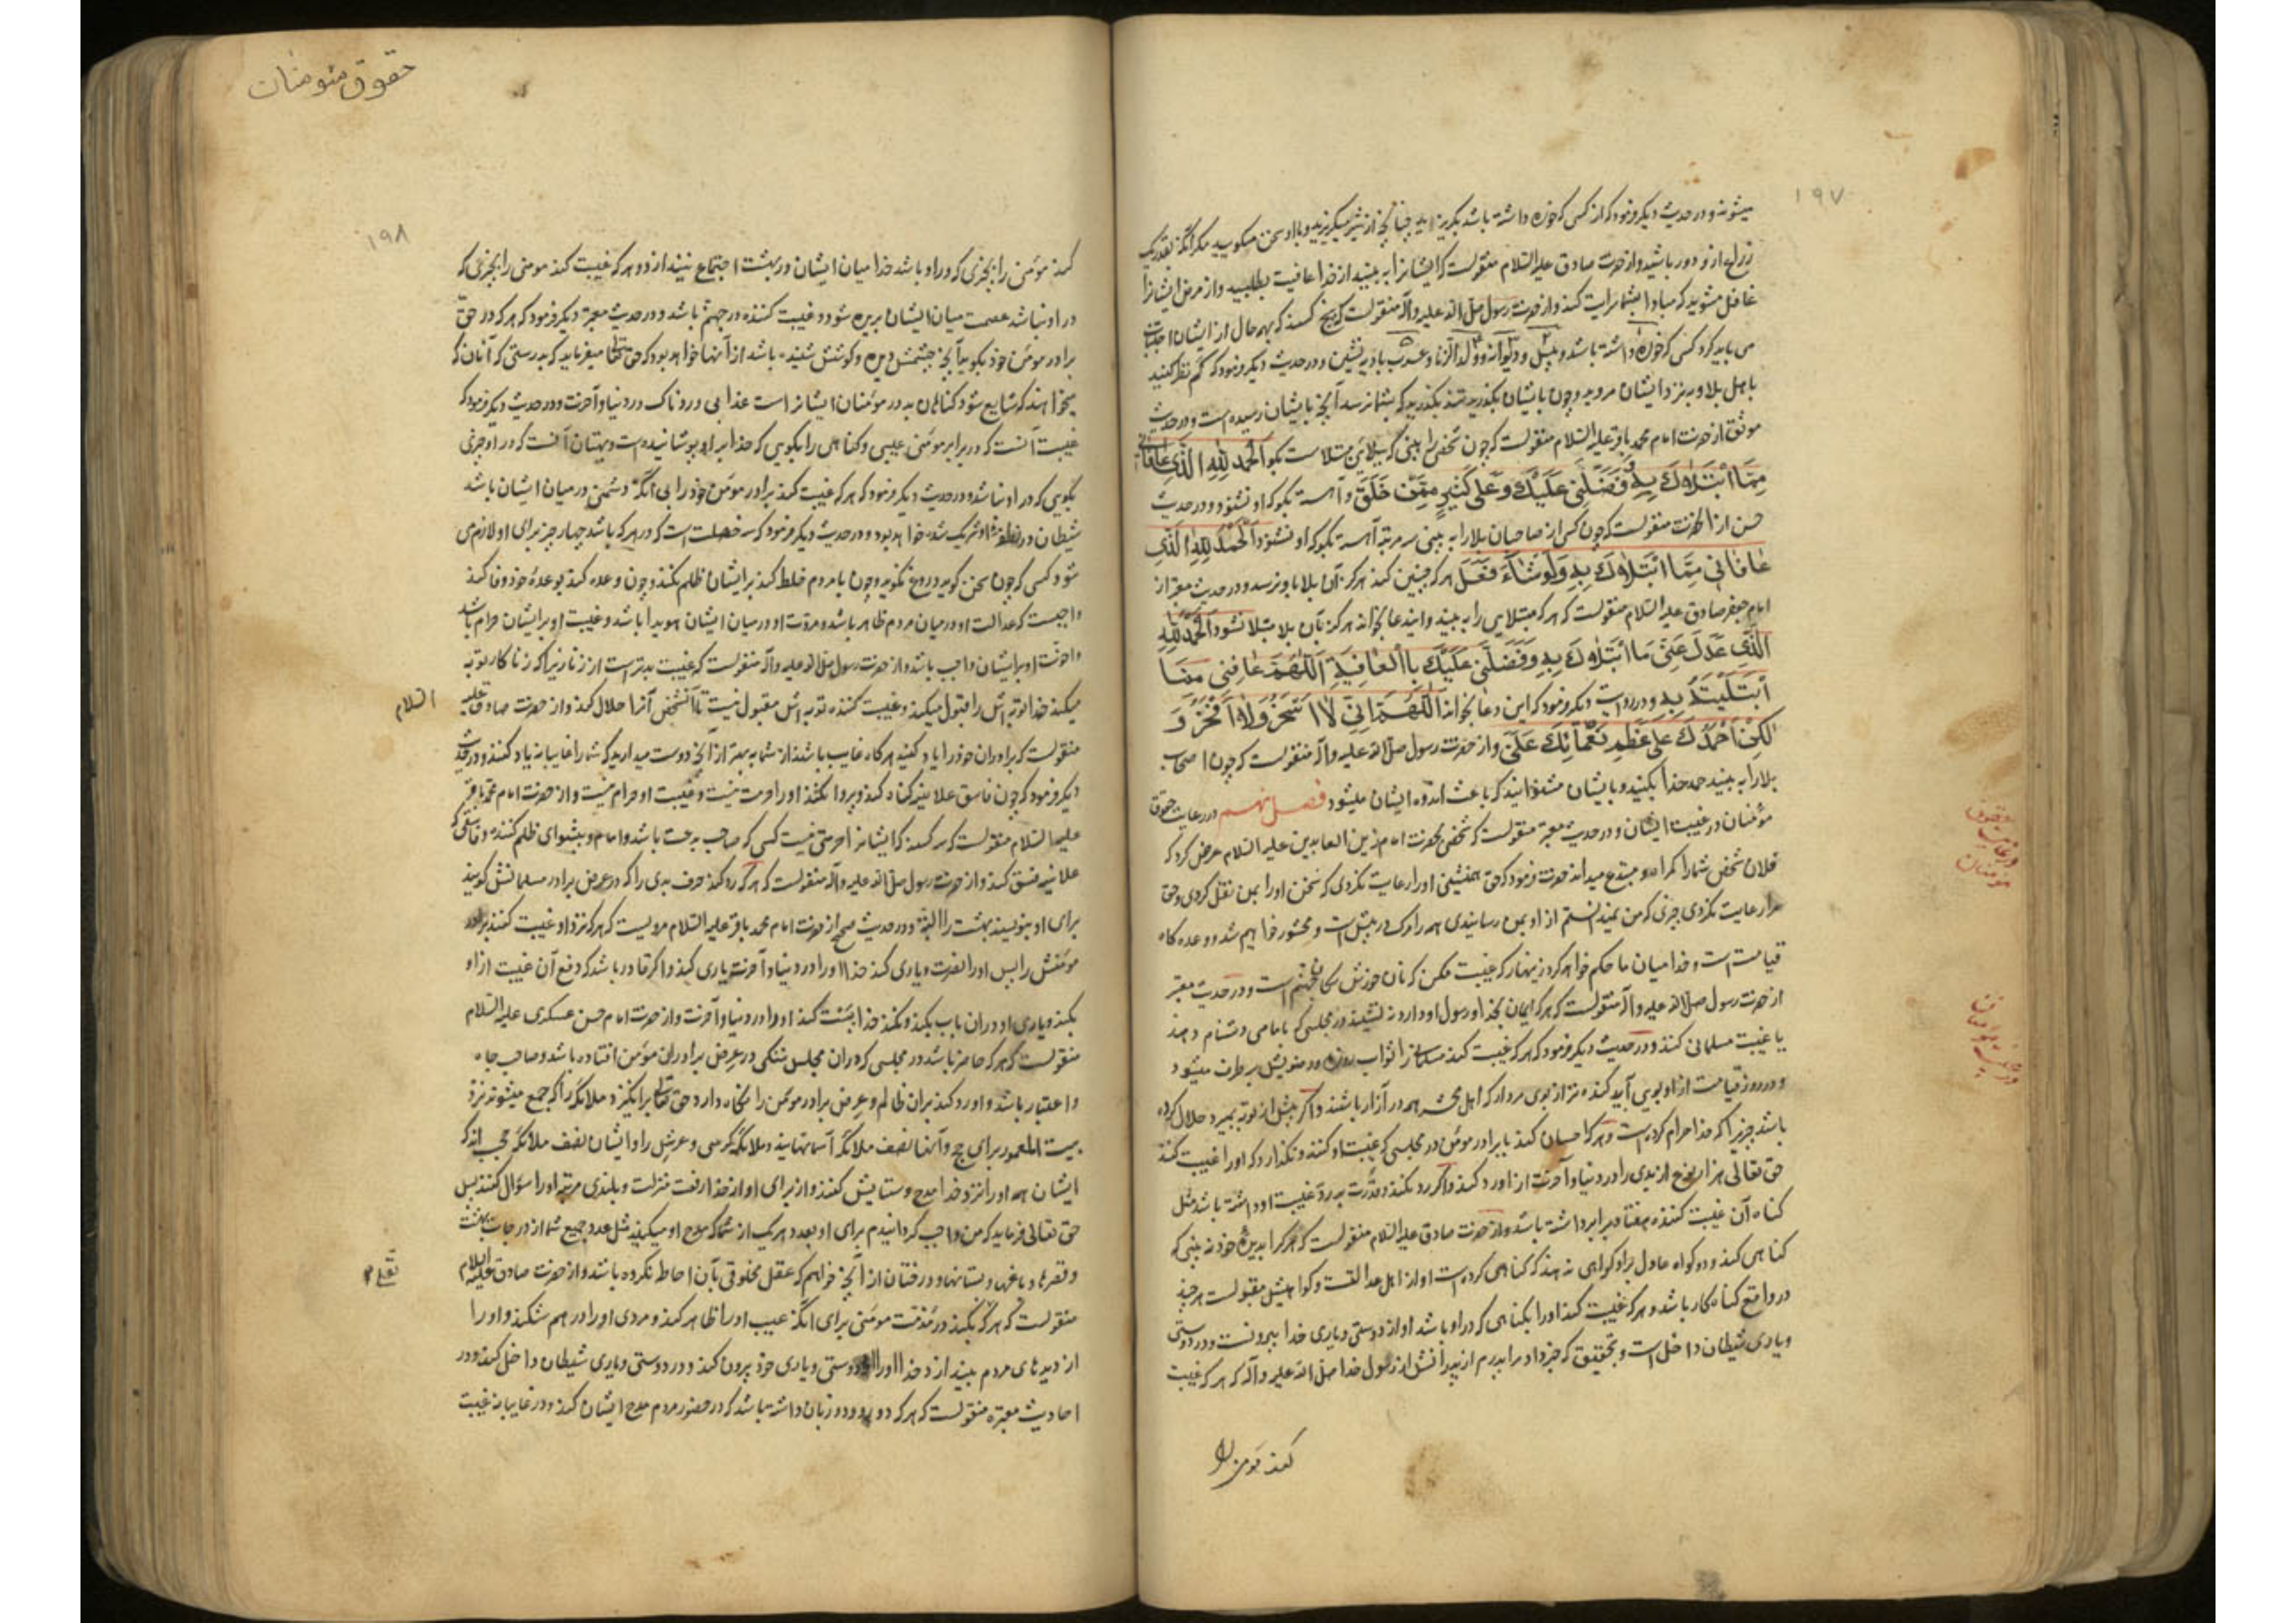 ۱۹۷
میشوند و در حدیث دیگر فرمود که از کسی که خوره داشته باشد بگریزید چنانچه از شیر میگریزید و با او سخن مگویید مگر آنکه بقدر یک
زراع از او دور باشید و از حضرت صادق علیه السلام منقولست که ایشانرا به بینید از خدا عافیت بطلبید و از مرض ایشانرا
غافل مشوید که مبادا بشما سرایت کند و از حضرت رسول صلی الله علیه و آله منقولست که پنج کسند که بهر حال از ایشان اجتناب
می باید کرد کسی که خوره داشته باشد و پیش و دیوانه و ولد الزنا و عرب بادیه نشین و در حدیث دیگر فرمود که کم نظر کنید
باهل بلا و به نزد ایشان مروید و چون بایشان بگذرید تند بگذرید که بشما نرسد آنچه بایشان رسیده است و در حدیث
موثق از حضرت امام محمد باقر علیه السلام منقولست که چون شخصی را بینی که ببلایی مبتلاست بگو اَلْحَمْدُ لِلّٰهِ الَّذِی عَافَانِی
مِمَّا ابْتَلَاکَ بِهِ وَ فَضَّلَنِی عَلَیْکَ وَ عَلٰی کَثِیرٍ مِمَّنْ خَلَقَ و آهسته بگو که او نشنود و در حدیث
حسن از آنحضرت منقولست که چون کسی از صاحبان بلا را به بینی سه مرتبه آهسته بگو که او نشنود اَلْحَمْدُ لِلّٰهِ الَّذِی
عَافَانِی مِمَّا ابْتَلَاکَ بِهِ وَلَوْ شَاءَ فَعَلَ هر که چنین کند هرگز آن بلا باو نرسد و در حدیث معتبر از
امام جعفر صادق علیه السلام منقولست که هر که مبتلایی را به بیند و این دعا بخواند هرگز بآن بلا مبتلا نشود اَلْحَمْدُ لِلّٰهِ
الَّذِی عَدَلَ عَنِّی مَا ابْتَلَاکَ بِهِ وَ فَضَّلَنِی عَلَیْکَ بِالْعَافِیَةِ اَللّٰهُمَّ عَافِنِی مِمَّا
ابْتَلَیْتَهُ بِهِ و در روایت دیگر فرمود که این دعا بخواند اَللّٰهُمَّ اِنِّی لَا اَسْخَرُ وَلَا اَفْخَرُ وَ
لٰکِنْ اَحْمَدُکَ عَلٰی عَظِیمِ نَعْمَائِکَ عَلَیَّ و از حضرت رسول صلی الله علیه و آله منقولست که چون اصحاب
بلا را به بینید حمد خدا بکنید و بایشان مشنوانید که باعث اندوه ایشان میشود فصل نهم در رعایت حقوق
مؤمنان در غیبت ایشان و در حدیث معتبر منقولست که شخصی بحضرت امام زین العابدین علیه السلام عرض کرد که
فلان شخص شما را گمراه و مبتدع میداند حضرت فرمود که حق همنشینی او را رعایت نکردی که سخن او را بمن نقل کردی و حق
مرا رعایت نکردی چیزی که من نمیدانستم از او بمن رسانیدی همه را مرگ در پیش است و محشور خواهیم شد و وعده گاه
قیامت است و خدا میان ما حکم خواهد کرد زینهار که غیبت مکن که نان خورش سگان جهنم است و در حدیث معتبر
از حضرت رسول صلی الله علیه و آله منقولست که هر که ایمان بخدا و رسول او دارد ننشیند در مجلسی که بامامی دشنام دهند
یا غیبت مسلمانی کنند و در حدیث دیگر فرمود که هر که غیبت کند مسلمانی را ثواب روزه و وضویش برطرف میشود
و در روز قیامت از او بویی آید گنده تر از بوی مردار که اهل محشر همه در آزار باشند و اگر پیش از توبه بمیرد حلال کرده
باشد چیزیرا که خدا حرام کرده است و هر که احسان کند با برادر مؤمن در مجلسی که غیبت او کنند و نگذارد که او را غیبت کنند
حق تعالی هزار نوع از بدی را در دنیا و آخرت از او رد کند و اگر رد نکند و قدرت بر رد غیبت او داشته باشد مثل
گناه آن غیبت کننده هفتاد برابر داشته باشد و از حضرت صادق علیه السلام منقولست که هر که را بدیده خود نه بینی که
گناهی کند و دو گواه عادل بر او گواهی ندهند که گناهی کرده است او از اهل عدالتست و گواهیش مقبولست هر چند
در واقع گناه کار باشد و هر که غیبت کند او را بگناهی که در او باشد او از دوستی و یاری خدا بیرونست و در دوستی
و یاری شیطان داخل است و بتحقیق که خبر داد مرا پدرم از پدرانش از رسول خدا صلی الله علیه و آله که هر که غیبت
کند مؤمن را
حقوق مئومنات
۱۹۸
کند مؤمنی را بچیزی که در او باشد خدا میان ایشان در بهشت اجتماع نیندازد و هر که غیبت کند مومنی را بچیزی که
در او نباشد عصمت میان ایشان بریده شود و غیبت کننده در جهنم باشد و در حدیث معتبر دیگر فرمود که هر که در حق
برادر مومن خود بگوید آنچه چشمش دیده و گوشش شنیده باشد از آنها خواهد بود که حق تعالی میفرماید که بدرستی که آنان که
میخواهند که شایع شود گناهان بد در مؤمنان ایشانراست عذابی دردناک در دنیا و آخرت و در حدیث دیگر فرمود که
غیبت آنست که در برادر مومن عیبی و گناهی را بگویی که خدا بر او پوشانیده است و بهتان آنست که در او چیزی
بگویی که در او نباشد و در حدیث دیگر فرمود که هر که غیبت کند برادر مؤمن خود را بی آنکه دشمنی در میان ایشان باشد
شیطان در نطفه او شریک شده خواهد بود و در حدیث دیگر فرمود که سه خصلت است که در هر که باشد چهار چیز برای او لازم می
شود کسی که چون سخن گوید دروغ نگوید و چون با مردم خلط کند بر ایشان ظلم نکند و چون وعده کند بوعده خود وفا کند
واجبست که عدالت او در میان مردم ظاهر باشد و مروت او در میان ایشان هویدا باشد و غیبت او بر ایشان حرام باشد
و اخوت او بر ایشان واجب باشد و از حضرت رسول صلی الله علیه و آله منقولست که غیبت بدتر است از زنا زیرا که زنا کار توبه
میکند خدا توبه اش را قبول میکند و غیبت کننده توبه اش مقبول نیست تا آنشخص آنرا حلال کند و از حضرت صادق علیه السلام
منقولست که برادران خود را یاد کنید هر گاه غایب باشند از شما به بهتر از آنچه دوست میدارید که شما را غایبانه یاد کنند و در حدیث
دیگر فرمود که چون فاسق علانیه گناه کند و پروا نکند او را حرمت نیست و غیبت او حرام نیست و از حضرت امام محمد باقر
علیه السلام منقولست که سه کسند که ایشانرا حرمتی نیست کسی که صاحب بدعت باشد و امام و پیشوای ظلم کننده و فاسقی که
علانیه فسق کند و از حضرت رسول صلی الله علیه و آله منقولست که هر که رد کند حرف بدی را که در عرض برادر مسلمانش گویند
برای او بنویسند بهشت را البته و در حدیث صحیح از حضرت امام محمد باقر علیه السلام مرویست که هر که نزد او غیبت کنند برادر
مومنش را پس او را نصرت و یاری کند خدا او را در دنیا و آخرت یاری کند و اگر قادر باشد که دفع آن غیبت از او
بکند و یاری او در آن باب بکند و نکند خدا پست کند او را در دنیا و آخرت و از حضرت امام حسن عسکری علیه السلام
منقولست که هر که حاضر باشد در مجلسی که در آن مجلس سگی در عرض برادران مؤمن افتاده باشد و صاحب جاه
و اعتبار باشد و او رد کند بر آن ظالم و عرض برادر مومن را نگاه دارد حق تعالی برانگیزد ملائکه را که جمع میشوند نزد
بیت المعمور برای حج و آنها نصف ملائکه آسمانهایند و ملائکه کرسی و عرش را و ایشان نصف ملائکه حجب اند که
ایشان همه او را نزد خدا مدح و ستایش کنند و از برای او از خدا رفعت منزلت و بلندی مرتبه او را سؤال کنند پس
حق تعالی فرماید که من واجب گردانیدم برای او بعدد هر یک از شما که مدح او میکنید مثل عدد جمیع شما از درجات بهشت
و قصرها و باغها و بستانها و درختان از آنچه خواهم که عقل مخلوقی بآن احاطه نکرده باشد و از حضرت صادق علیه السلام
منقولست که هر که بکند در مذمت مومنی برای آنکه عیب او را ظاهر کند و مردی او را در هم شکند و او را
از دیدهای مردم بیندازد خدا او را از دوستی و یاری خود بیرون کند و در دوستی و یاری شیطان داخل کند و در
احادیث معتبره منقولست که هر که دو رو و دو زبان داشته باشد که در حضور مردم مدح ایشان کند و در غایبانه غیبت